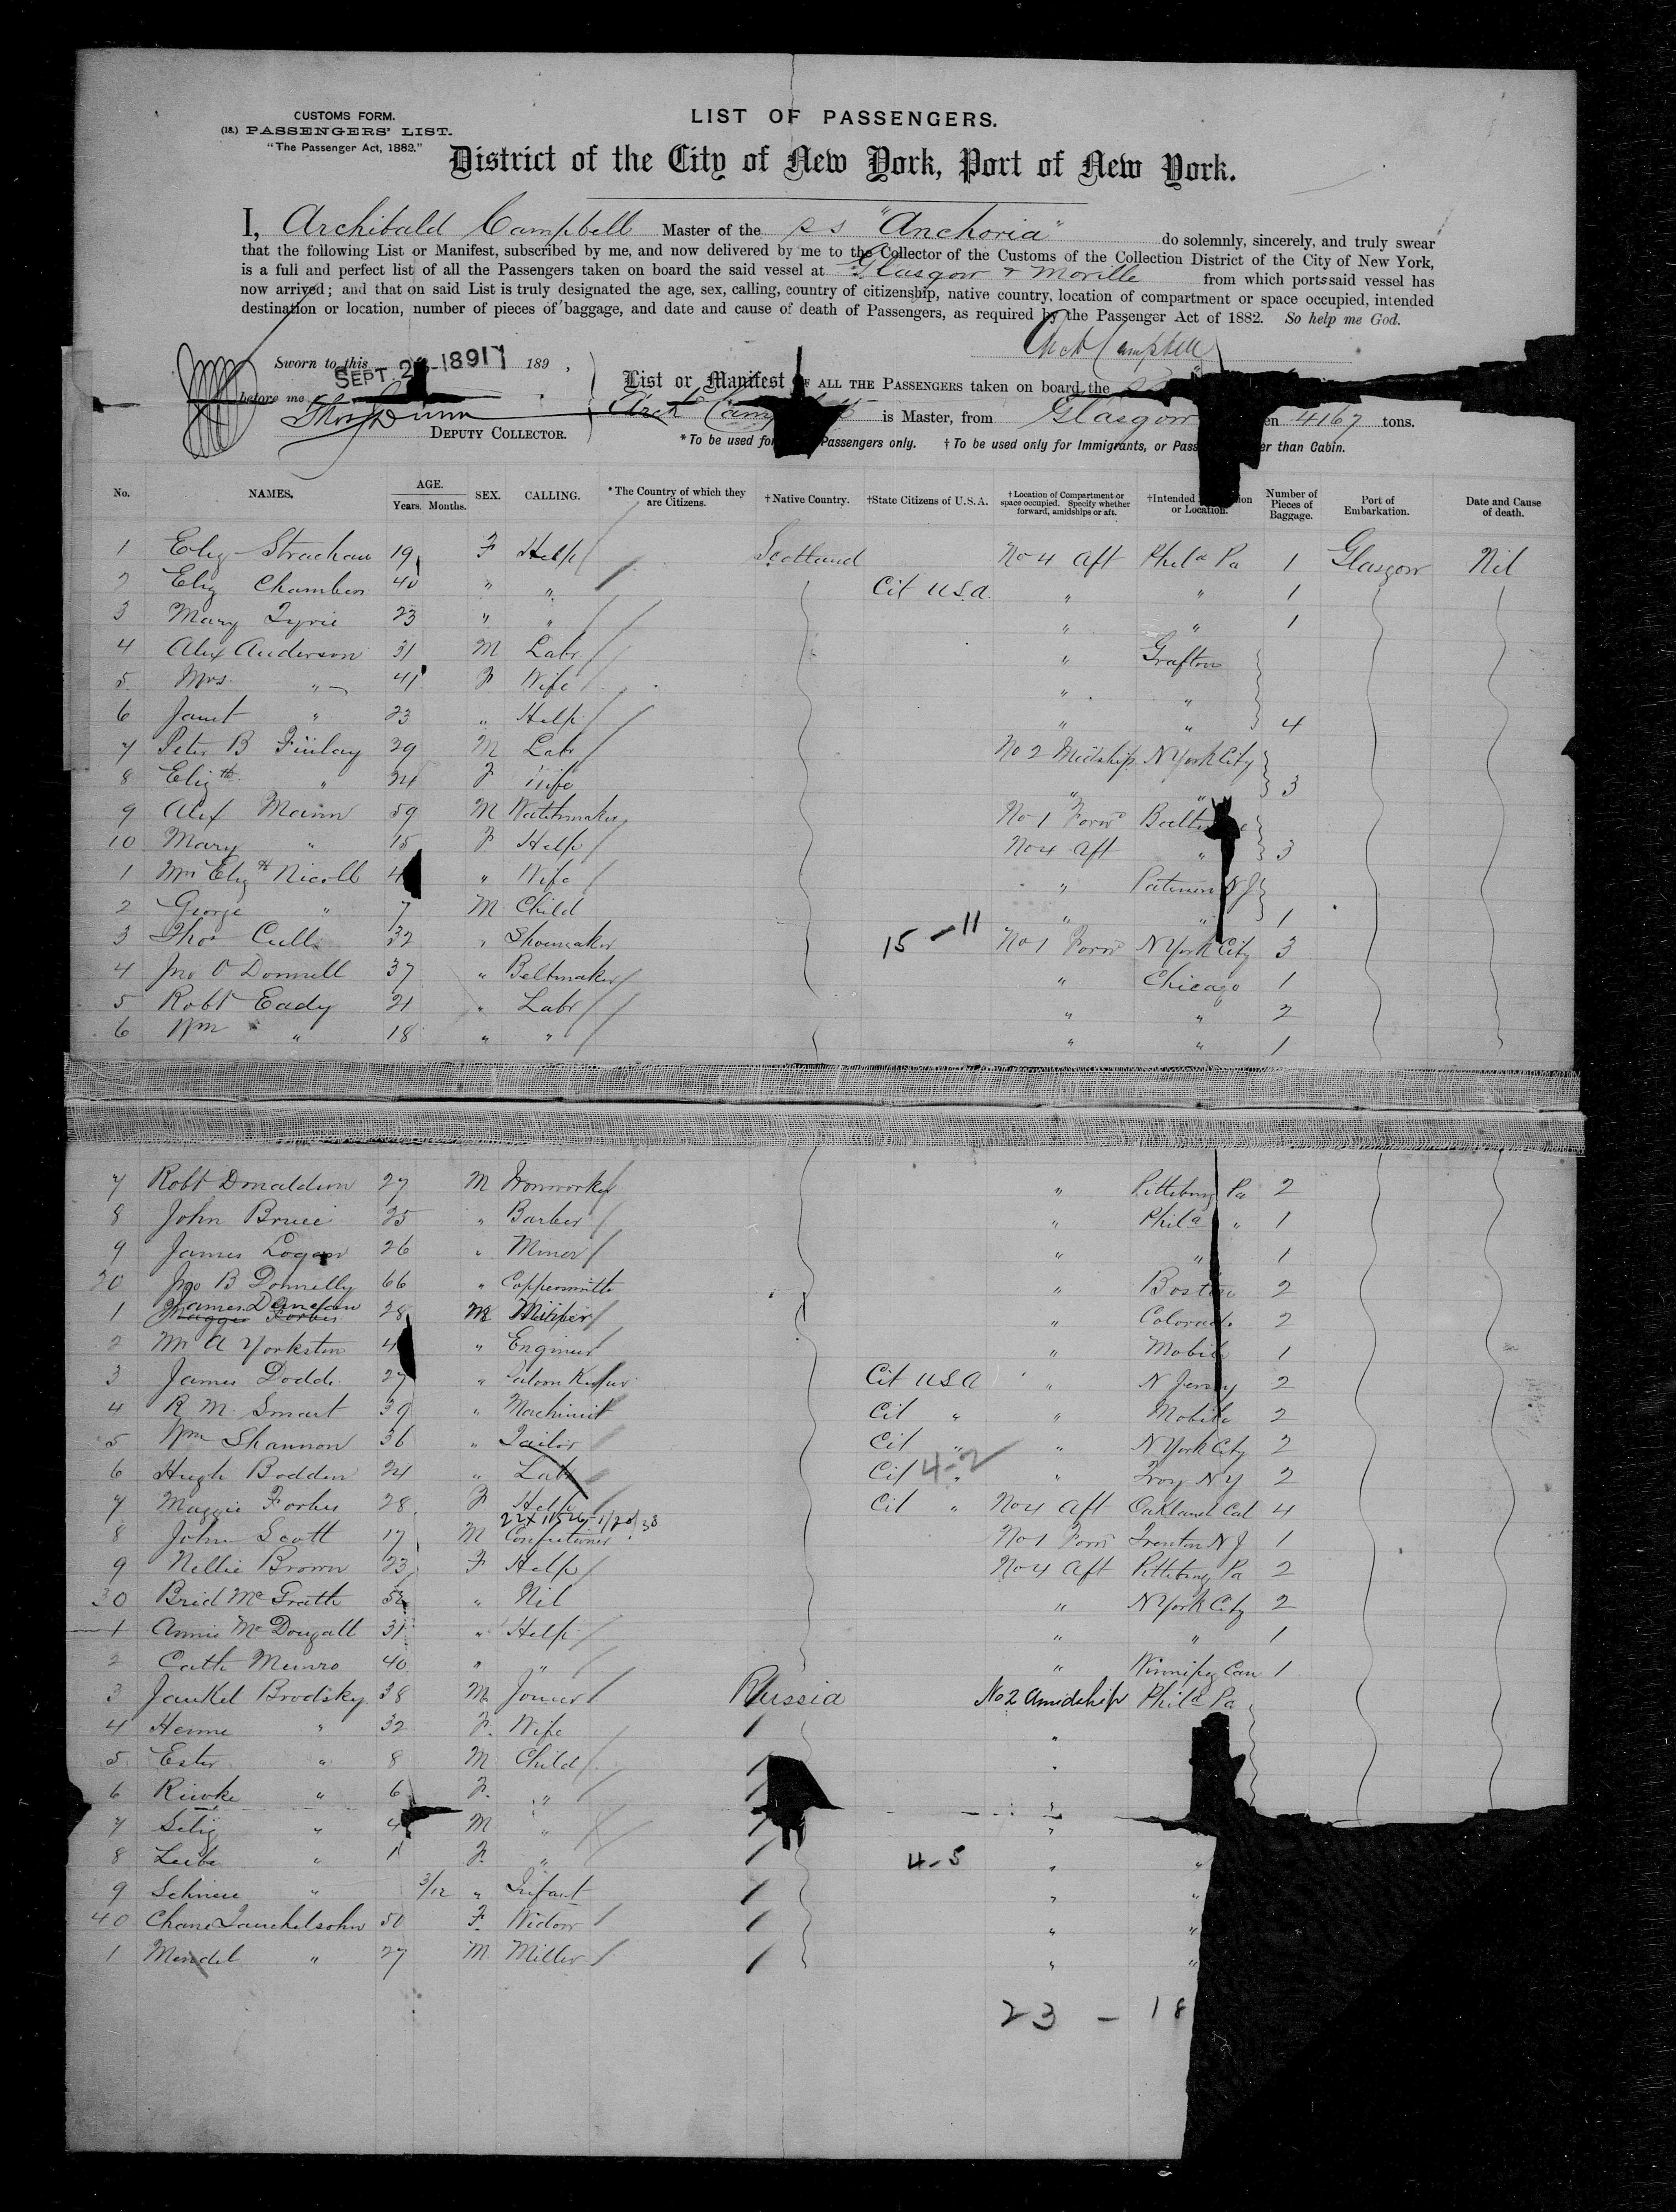 CUSTOMS FORM.
(18.) PASSENGERS' LIST.
"The Passenger Act, 1882."
LIST OF PASSENGERS.
District of the City of New York, Port of New York.
I, Archibald Campbell Master of the SS "Anchoria" do solemnly, sincerely, and truly swear
that the following List or Manifest, subscribed by me, and now delivered by me to the Collector of the Customs of the Collection District of the City of New York,
is a full and perfect list of all the Passengers taken on board the said vessel at Glasgow & Moville from which ports said vessel has
now arrived; and that on said List is truly designated the age, sex, calling, country of citizenship, native country, location of compartment or space occupied, intended
destination or location, number of pieces of baggage, and date and cause of death of Passengers, as required by the Passenger Act of 1882. So help me God.
Arch Campbell
Sworn to this SEPT. 2 1891 189 ,
before me
Thos Dunn
DEPUTY COLLECTOR.
List or Manifest OF ALL THE PASSENGERS taken on board the SS
Arch Campbell is Master, from Glasgow 4167 tons.
* To be used for Passengers only. † To be used only for Immigrants, or than Cabin.
No. NAMES. AGE. Years. Months. SEX. CALLING. * The Country of which they are Citizens. † Native Country. † State Citizens of U.S.A. † Location of Compartment or space occupied. Specify whether forward, amidships or aft. † Intended or Location. Number of Pieces of Baggage. Port of Embarkation. Date and Cause of death.
1 Eliz Strachan 19 F Help Scotland No 4 Aft Phila Pa 1 Glasgow Nil
2 Eliz Chambers 40 " " Cit USA " " 1
3 Mary Tyrie 23 " " " " 1
4 Alex Anderson 31 M Labr " Grafton
5 Mrs " 41 F Wife " "
6 Janet " 23 " Help " " 4
7 Peter B Finlay 29 M Labr No 2 Midship N York City
8 Elizth " 24 F Wife " " 3
9 Alex Mainn 59 M Watchmaker No 1 Forwd
10 Mary " 15 F Help No 4 Aft " 3
1 Mrs Elizth Nicoll 4 " Wife " N J
2 George " 7 M Child " " 1
3 Thos 32 " Shoemaker 15 - 11 No 1 Forwd N York City 3
4 Jno O Donnell 37 " Beltmaker " Chicago 1
5 Robt Eady 21 " Labr " " 2
6 Wm " 18 " " " " 1
7 Robt Donaldson 27 M Ironworker " Pittsburg Pa 2
8 John Bruce 25 " Barber " Phila " 1
9 James Logan 26 " Miner " " 1
20 Jno B Donnelly 66 " Coppersmith " Boston 2
1 James 28 M " Colorado 2
2 Mr A Yorkston 4 " Engineer " Mobile 1
3 James Dodds 27 " Saloon Keeper Cit USA " N Jersey 2
4 R M Smart 39 " Machinist Cit " " Mobile 2
5 Wm Shannon 36 " Tailor Cit " " N York City 2
6 Hugh Bodden 24 " Labr Cit " 4-2 " Troy NY 2
7 Maggie Forbes 28 F Help Cit " No 4 Aft Oakland Cal 4
8 John Scott 17 M Confectioner No 1 Forwd Trenton N J 1
9 Nellie Brown 23 F Help No 4 Aft Pittsburg Pa 2
30 Brid McGrath " Nil " N York City 2
1 Annie McDougall 31 " Help " " 1
2 Cath Munro 40 " " " Winnipeg Can 1
3 Jankel Brodsky 38 M Joiner Russia No 2 Amidship Phila Pa
4 " 32 F Wife "
5 Ester " 8 M Child "
6 Riwke " 6 F " "
7 Selig " 4 M " "
8 Leibe " 1 F " 4-5 " "
9 " 3/12 " Infant " "
40 Chane 50 F Widow " "
1 Mendel " 27 M Miller " "
23 - 18